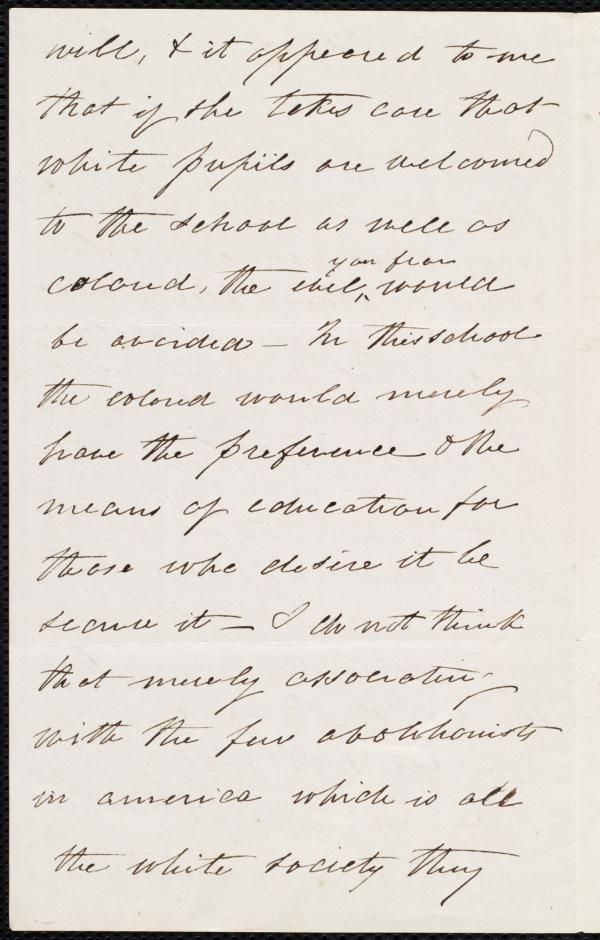 will, & it appeared to me
that if she takes care that
white pupils are welcomed
to the school as well as
colored, the evil ^ you fear would
be avoided – In this school
the colored would merely
have the preference & the
means of education for
those who desire it be
secure it – I do not think
that merely associating
with the few abolitionists
in america which is all
the white society they